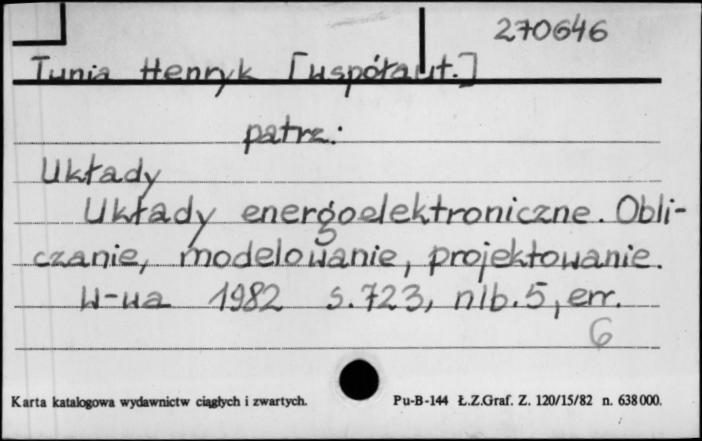 270646
Tunia Henryk [współaut.]
patrz:
Układy
Układy energoelektroniczne. Obli-
czanie, modelowanie, projektowanie.
W-wa 1982 s. 723, nlb. 5, err.
6
Karta katalogowa wydawnictw ciągłych i zwartych. Pu-B-144 Ł.Z.Graf. Z. 120/15/82 n. 638000.